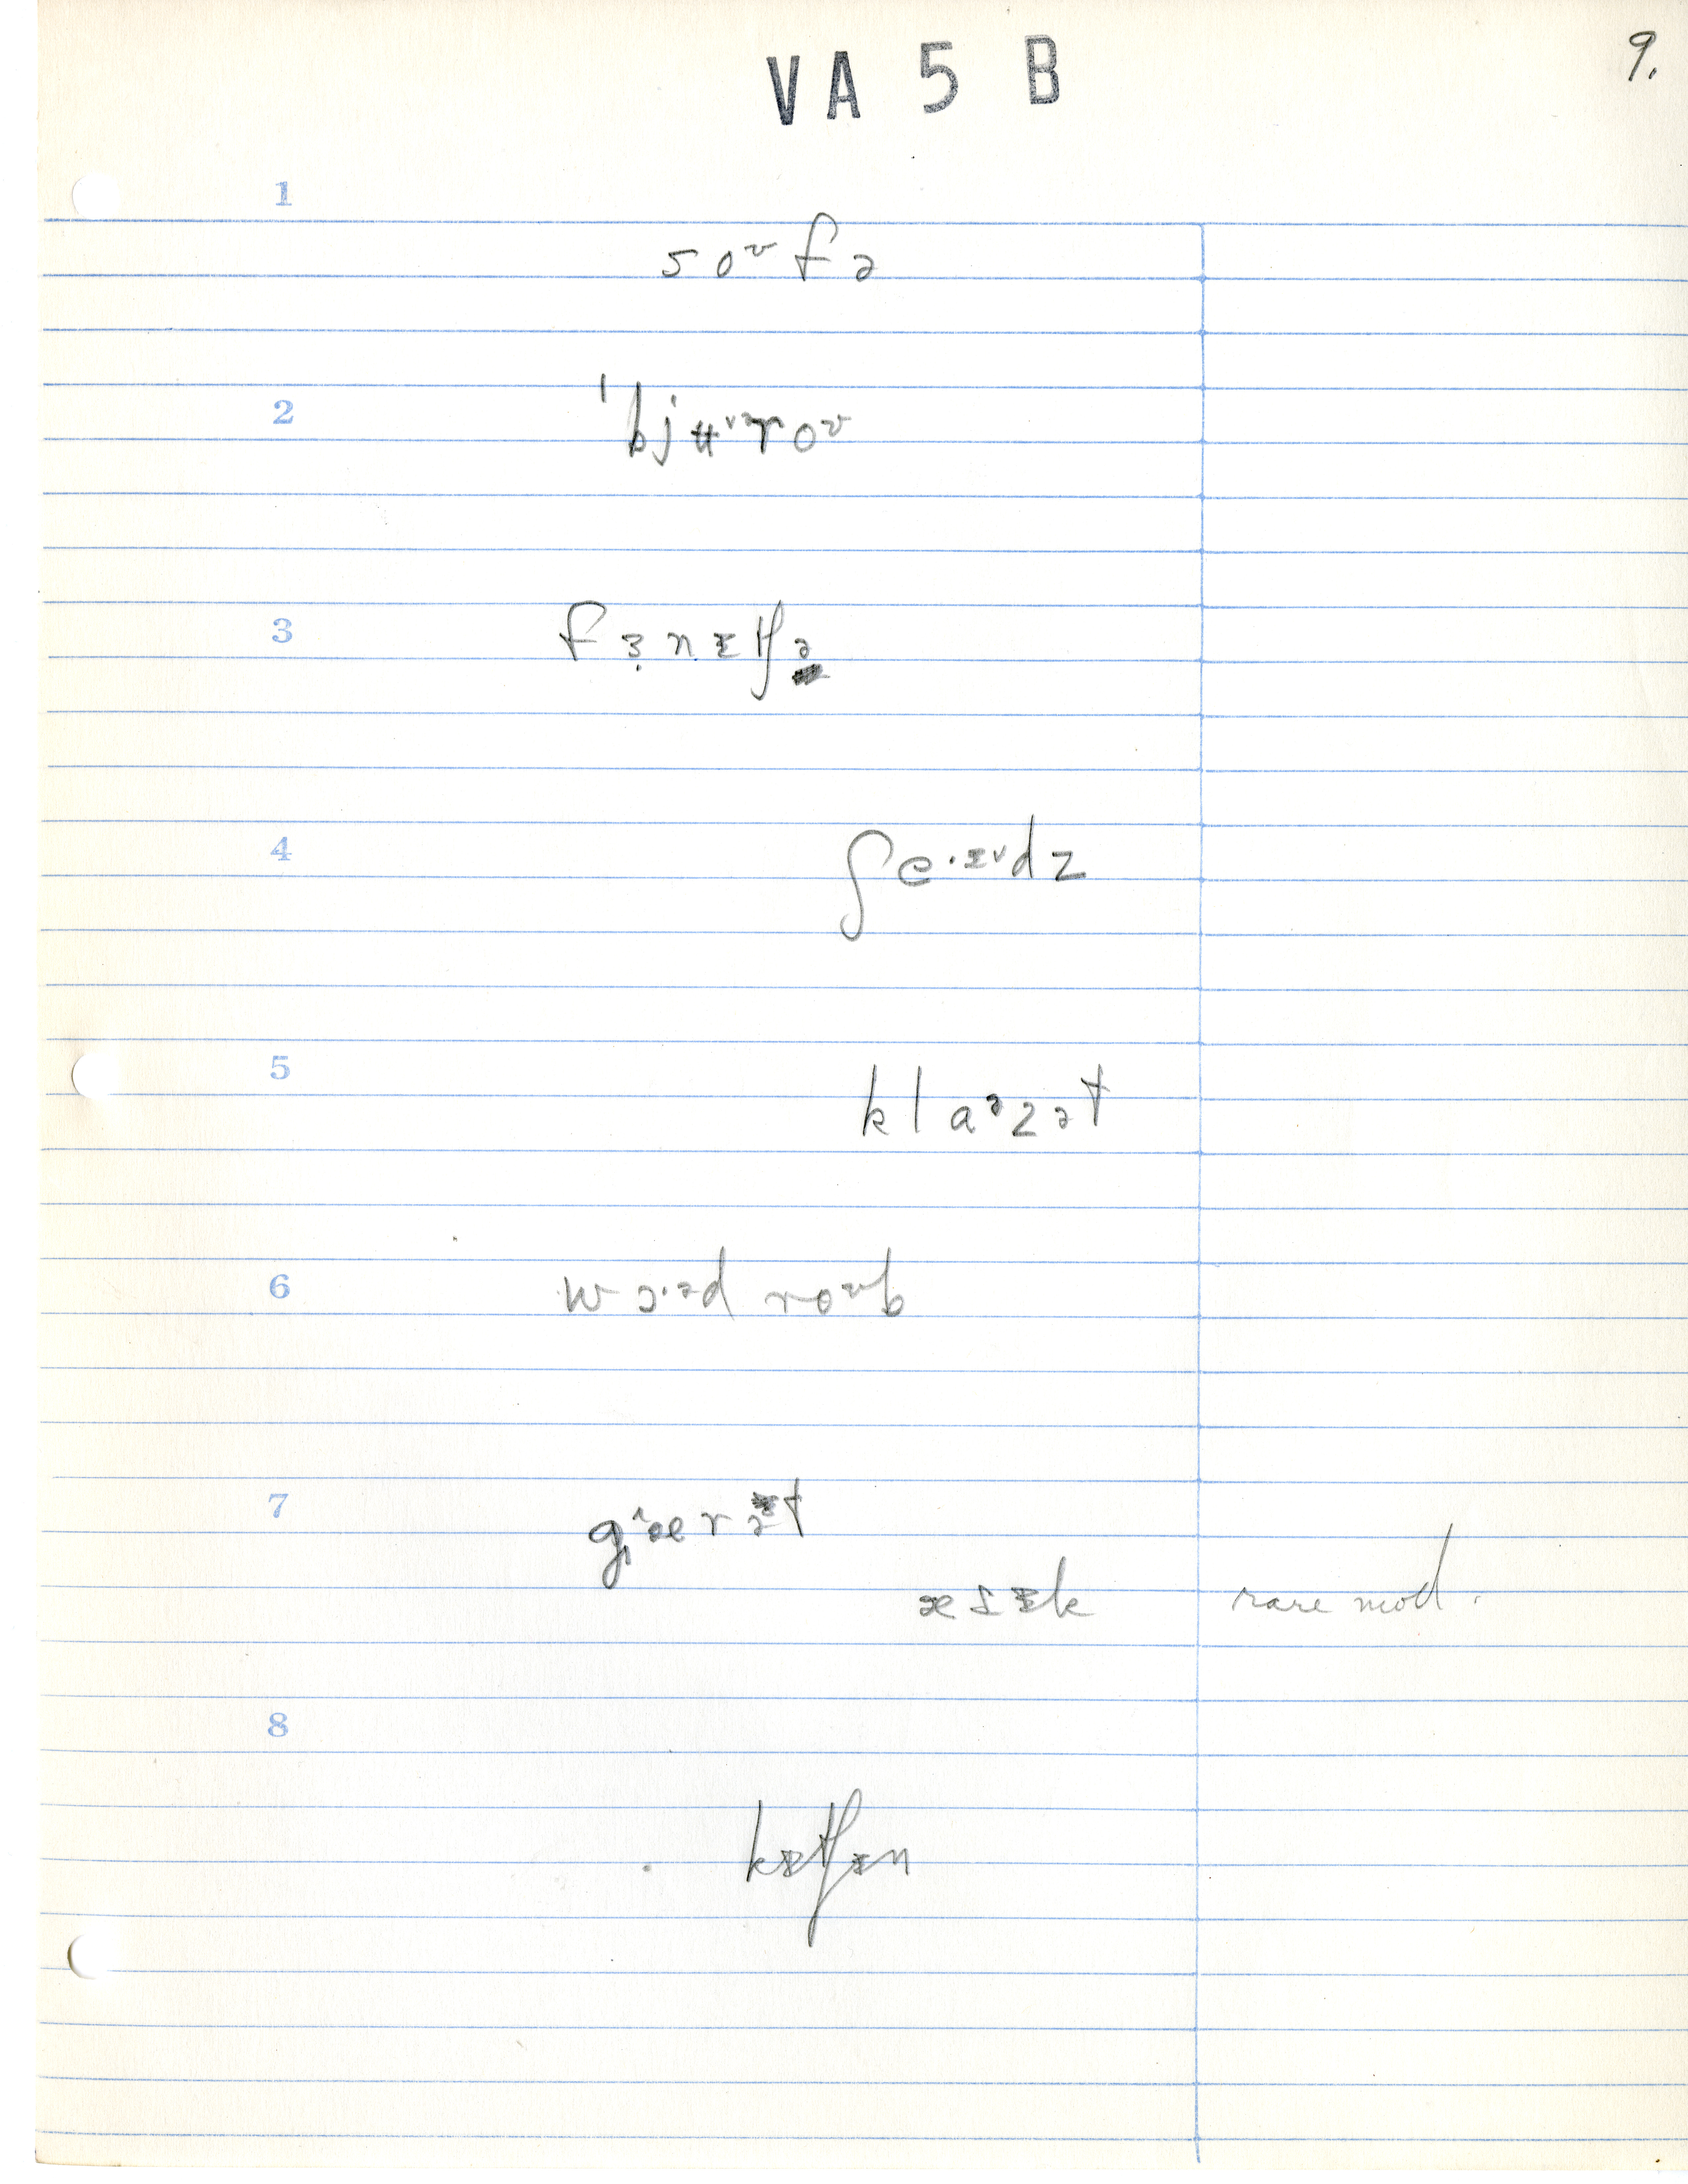 VA 5 B
9.
1
so ᶷfə
2
ˈbjʉᶷᵊroᶷ
3
fɜ̣nɪtʃə
4
ʃe·ɪ˅dz
5
klaᵊzət
6
wɔ·ᵊd roᶷb
7
gᶺærət
ætɪk rare mod.
8
kɪtʃɪn